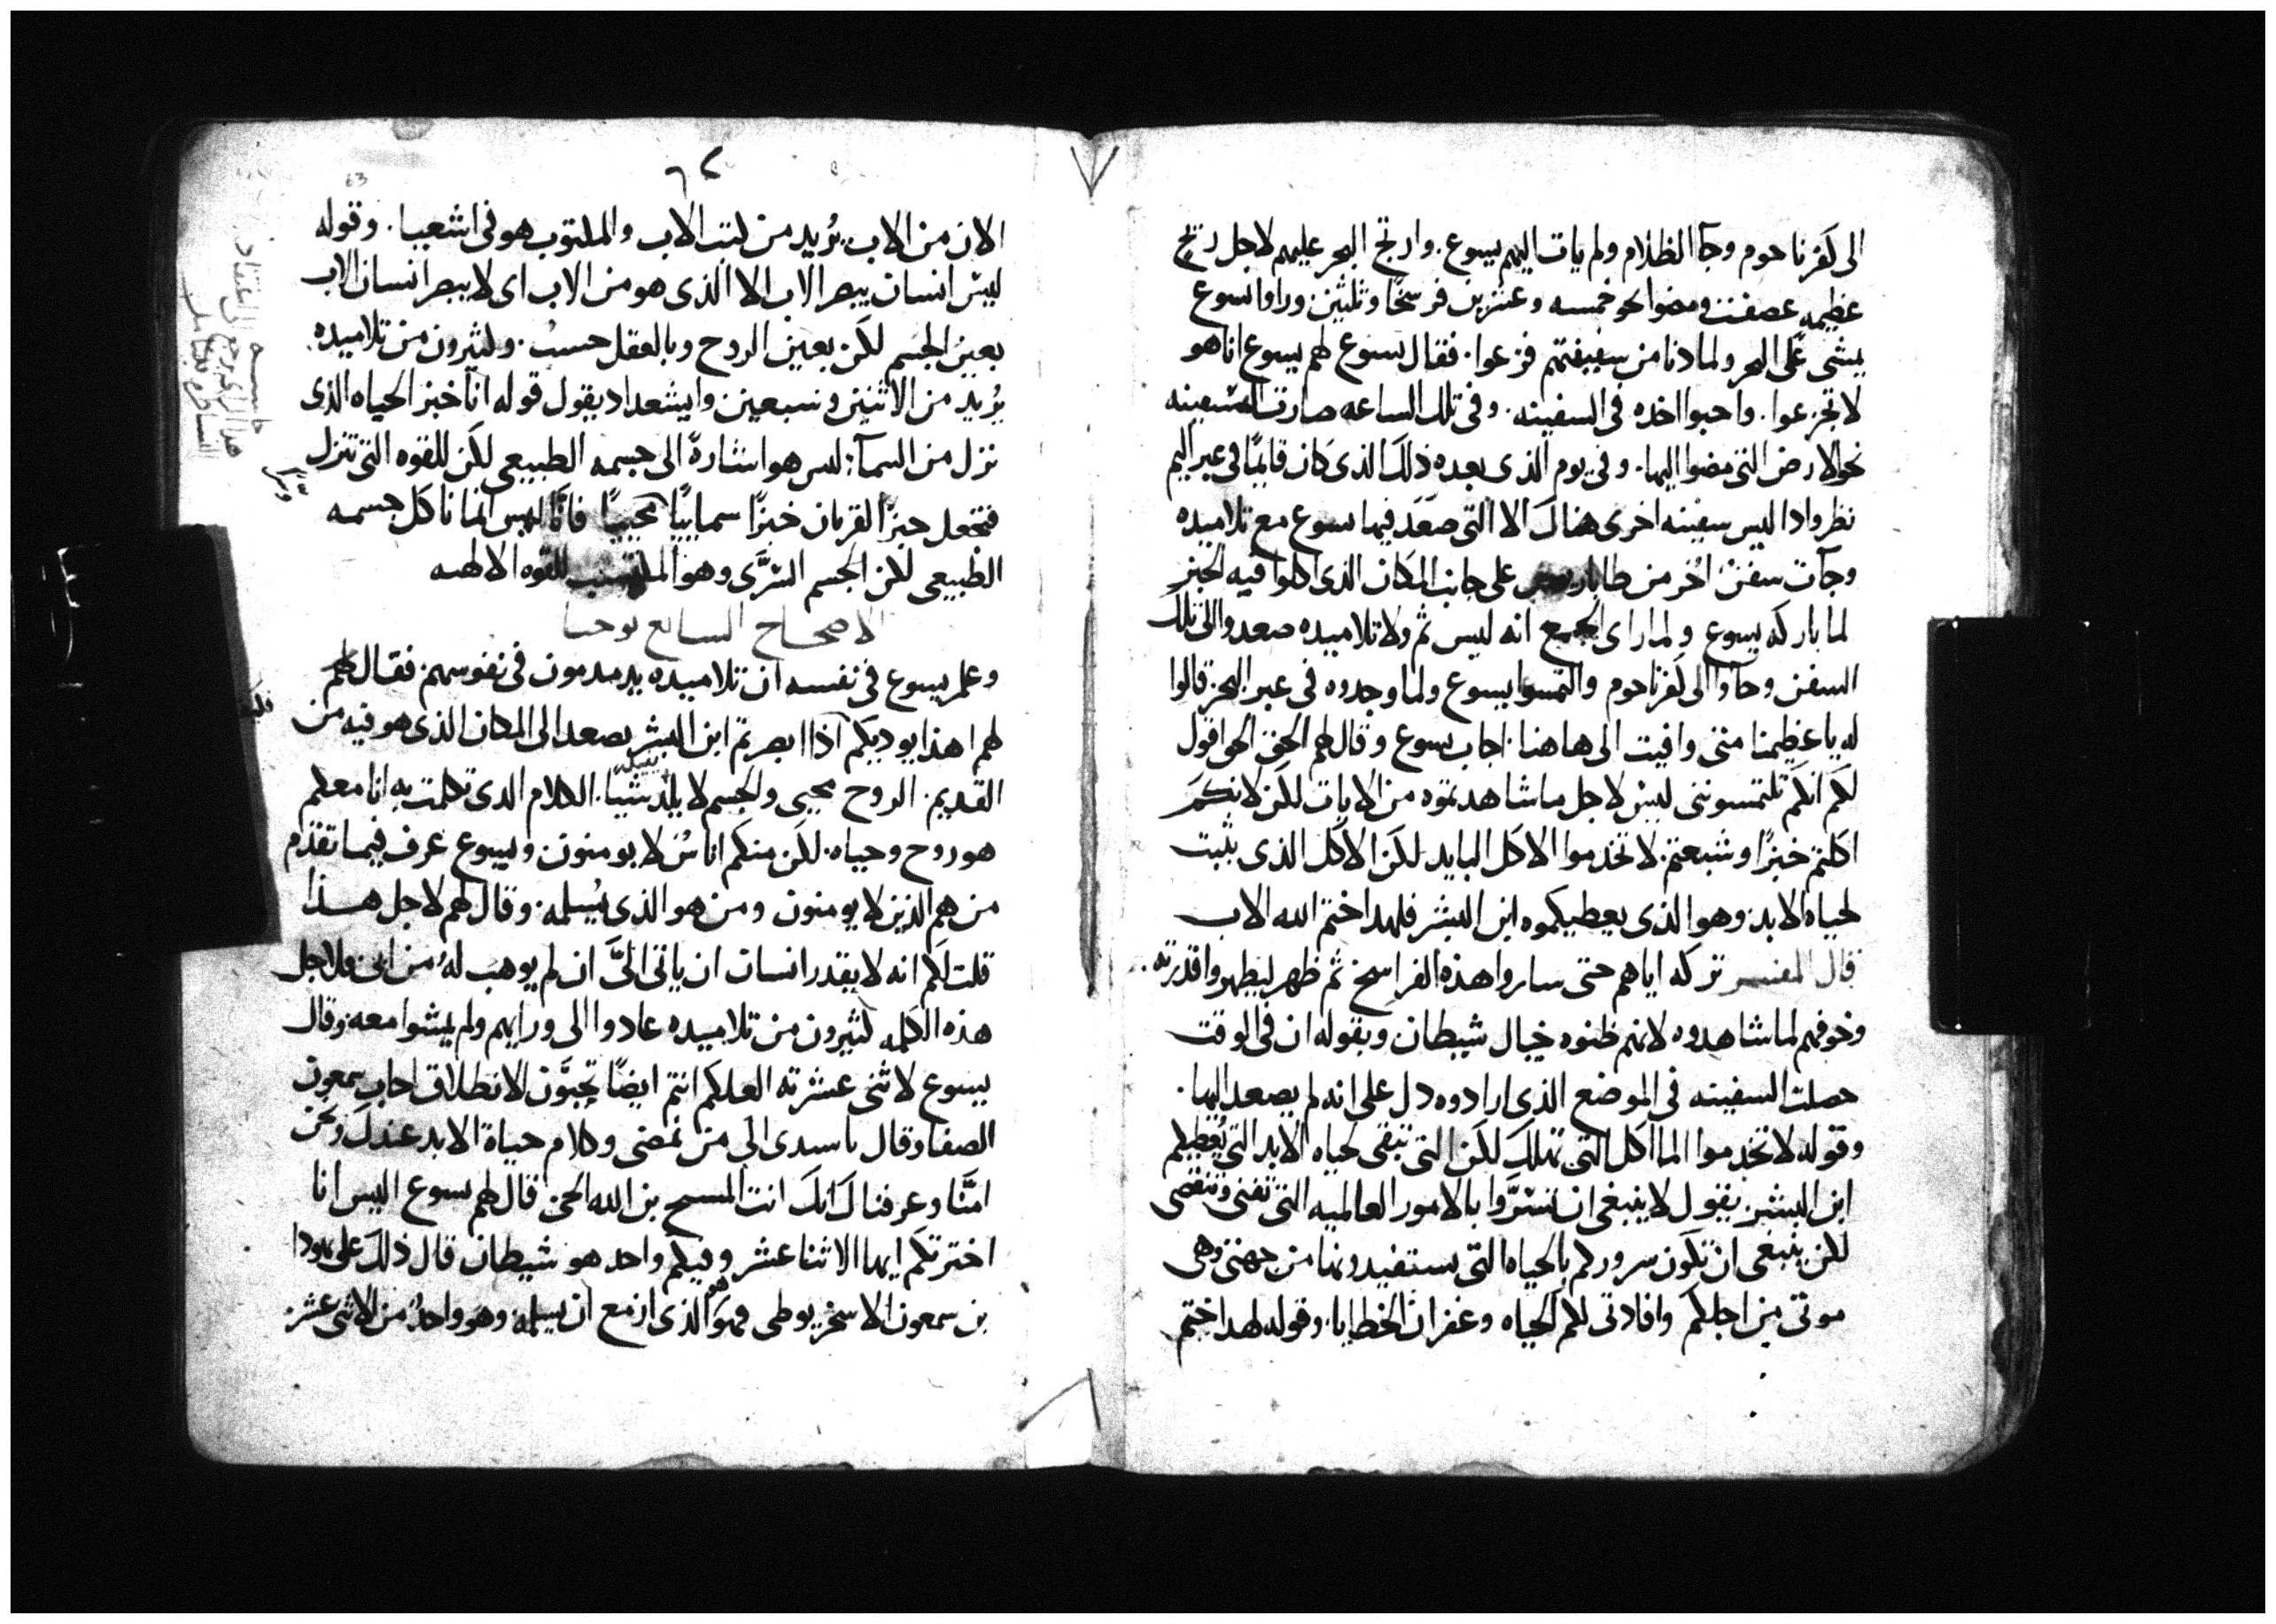 الى كفرناحوم وجآ الظلام ولم يات اليهم يسوع. وارتج البحر عليهم لاجل ريح
عظيمه عصفت ومضوا نحو خمسه وعشرين فرسخًا وثلثين وراوا يسوع
يمشى على البحر ولما دنا من سفينتهم فزعوا. فقال يسوع لهم يسوع انا هو
لا تجزعوا. واحبوا اخده فى السفينه. وفى تلك الساعه صارت السفينه
نحو الارض التى مضوا اليها. وفى يوم الذى بعده ذلك الذى كان قايمًا فى عبر اليم
نظروا اد ليس سفينه اخرى هناك الا التى صعد فيها يسوع مع تلاميده
وجآت سفن اخر من على جانب المكان الذى اكلوا فيه الخبز
لما باركه يسوع ولما راى الجمع انه ليس ثم ولا تلاميده صعدوا الى تلك
السفن وجاوا الى كفرناحوم والتمسوا يسوع ولما وجدوه فى عبر البحر قالوا
له يا عظيمنا متى وافيت الى هاهنا. اجاب يسوع وقال لهم الحق الحق اقول
لكم انكم تلتمسوننى ليس لاجل ما شاهدتموه من الايات لكن لانكم
اكلتم خبزًا وشبعتم. لا تخدموا الاكل البايد لكن الاكل الذى يثبت
لحياه الابد وهو الذى يعطيكموه ابن البشر فلهدا ختم الله الاب
قال المفسر تركه اياهم حتى ساروا هذه الفراسخ ثم ظهر ليظهر واقدرته.
وخوفهم لما شاهدوه لانهم ظنوه خيال شيطان وبقوله ان فى الوقت
حصلت السفينه فى الموضع الذى ارادوه دل على انه لم يصعد اليها.
وقوله لا تخدموا الماكل التى تهلك لكن التى تبقى لحياه الابد التى يعطيكم
ابن البشر يقول لا ينبغى ان تسروا بالامور العالميه التى تفنى وتنقضى
لكن ينبغى ان تكون سروركم بالحياه التى يستفيدونها من جهتى وهى
موتى من اجلكم وافادتى لكم الحياه وغفران الخطايا. وقوله لهدا ختم
الان من الاب يُريد من كتب الاب والمكتوب هو فى اشعيا. وقوله
ليس انسان يبصر الاب الا الذى هو من الاب اى لا يبصر انسان الاب
بعين الجسم لكن بعين الروح وبالعقل حسب. وكثيرون من تلاميده.
يُريد من الاثنين وسبعين وايشعداد يقول قوله انا خبز الحياه الذى
نزل من السمآ: ليس هو اشارة الى جسمه الطبيعى لكن للقوه التى تنزل
فتجعل خبز القربان خبزًا سماييًا محييًا فانا ليس انما ناكل جسمه
الطبيعى لكن الجسم السّرى وهو للقوه الالهيه
الاصحاح السابع يوحنا
وعلم يسوع فى نفسه ان تلاميده يدمدمون فى نفوسهم فقال لهم
لهم اهذا يوديكم اذا ابصرتم ابن البشر يصعد الى المكان الذى هو فيه من
القديم. الروح محيى والجسم لا يفيد شيا. الكلام الدى تكلمت به انا معكم
هو روح وحياه. لكن منكم اناسٌ لا يومنون ويسوع عرف فيما تقدم
من هم الذين لا يومنون ومن هو الذى يُسلمه. وقال لهم لاجل هذا
قلت لكم انه لا يقدر انسان ان ياتى الىَّ ان لم يوهب لهُ من ابى ولاجل
هذه الكلمه كثيرون من تلاميده عادوا الى ورايهم ولم يمشوا معه وقال
يسوع لاثنى عشرته العلكم انتم ايضًا تحبّون الانطلاق اجاب سمعون
الصفا وقال يا سيدى الى من نمضى وكلام حياة الابد عندك ونحن
امنّا وعرفنا ك انك انت المسيح بن الله الحى قال لهم يسوع اليس انا
اخترتكم ايها الاثنا عشر وفيكم واحد هو شيطان قال ذلك على يهودا
بن سمعون الاسخريوطى فهو الذى ازمع ان يسلمه وهو واحدٌ من الاثنى عشر